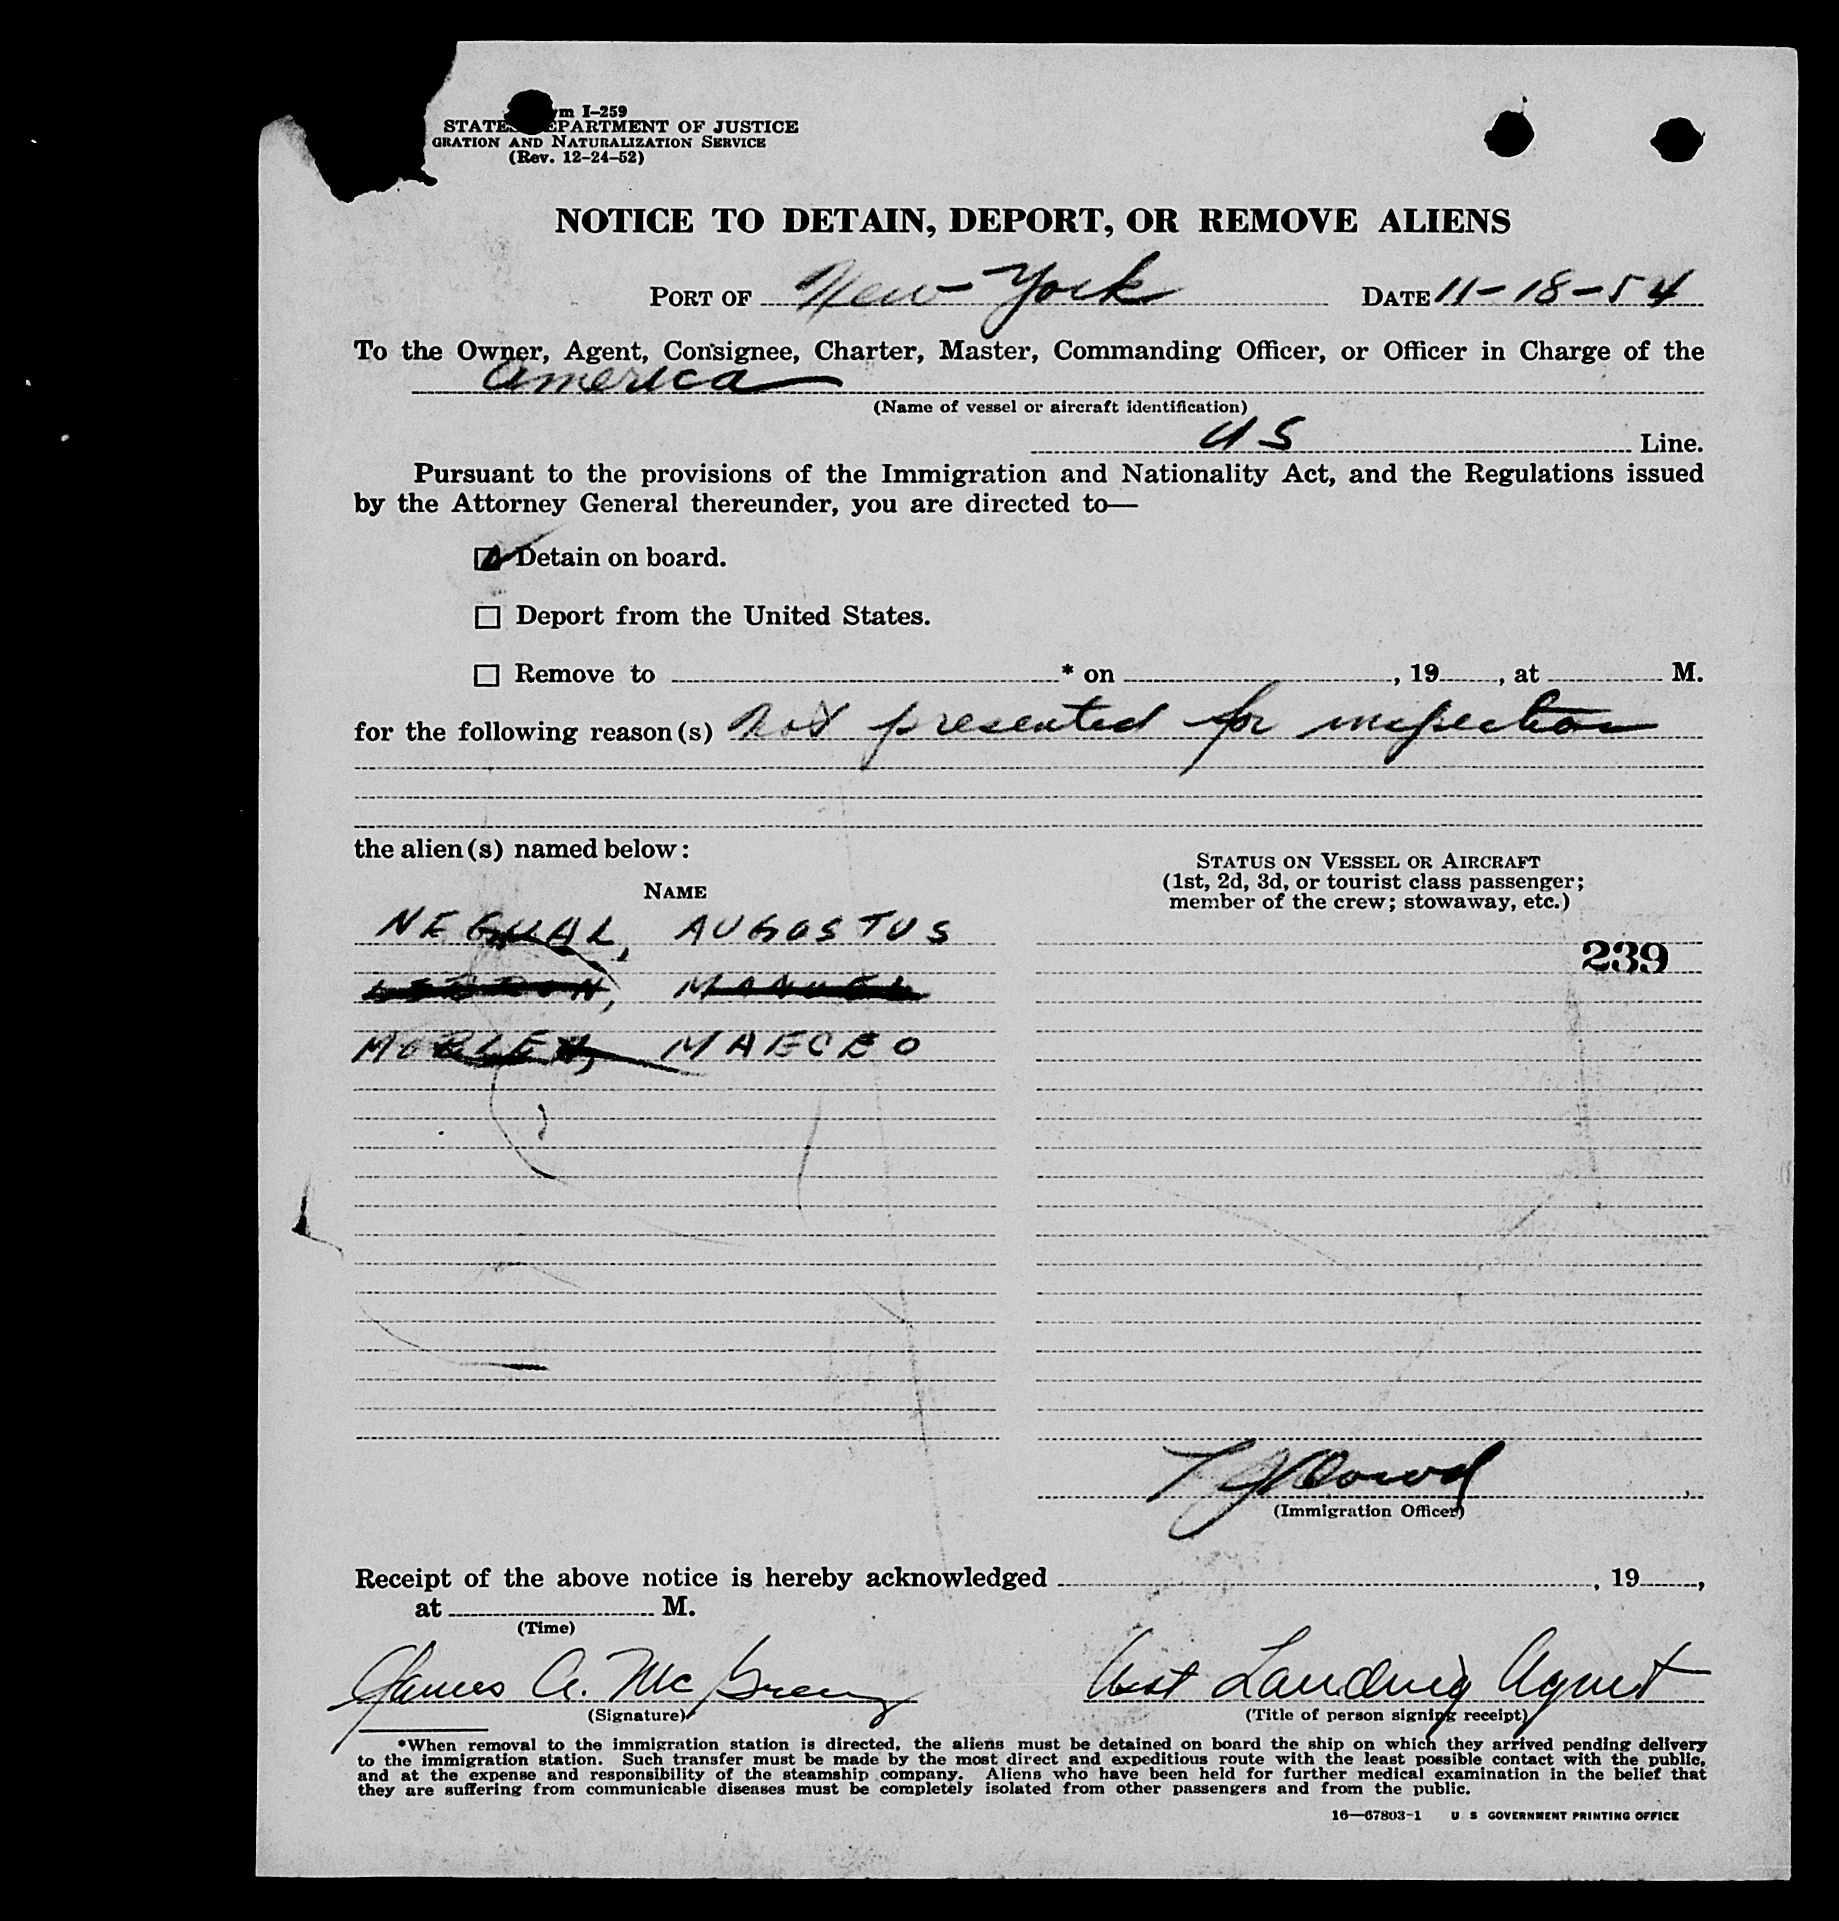 m I-259
STATES DEPARTMENT OF JUSTICE
GRATION AND NATURALIZATION SERVICE
(Rev. 12-24-52)
NOTICE TO DETAIN, DEPORT, OR REMOVE ALIENS
PORT OF New York DATE 11-18-54
To the Owner, Agent, Consignee, Charter, Master, Commanding Officer, or Officer in Charge of the
America
(Name of vessel or aircraft identification)
US Line.
Pursuant to the provisions of the Immigration and Nationality Act, and the Regulations issued
by the Attorney General thereunder, you are directed to—
Detain on board.
Deport from the United States.
Remove to * on , 19 , at M.
for the following reason(s) Not presented for inspection
the alien(s) named below:
NAME
STATUS ON VESSEL OR AIRCRAFT
(1st, 2d, 3d, or tourist class passenger;
member of the crew; stowaway, etc.)
NEGUAL, AUGOSTUS
239
MANUEL
(Immigration Officer)
Receipt of the above notice is hereby acknowledged , 19 ,
at M.
(Time)
James A. Mc Asst Landing Agent
(Signature) (Title of person signing receipt)
*When removal to the immigration station is directed, the aliens must be detained on board the ship on which they arrived pending delivery
to the immigration station. Such transfer must be made by the most direct and expeditious route with the least possible contact with the public,
and at the expense and responsibility of the steamship company. Aliens who have been held for further medical examination in the belief that
they are suffering from communicable diseases must be completely isolated from other passengers and from the public.
16—67803-1 U S GOVERNMENT PRINTING OFFICE